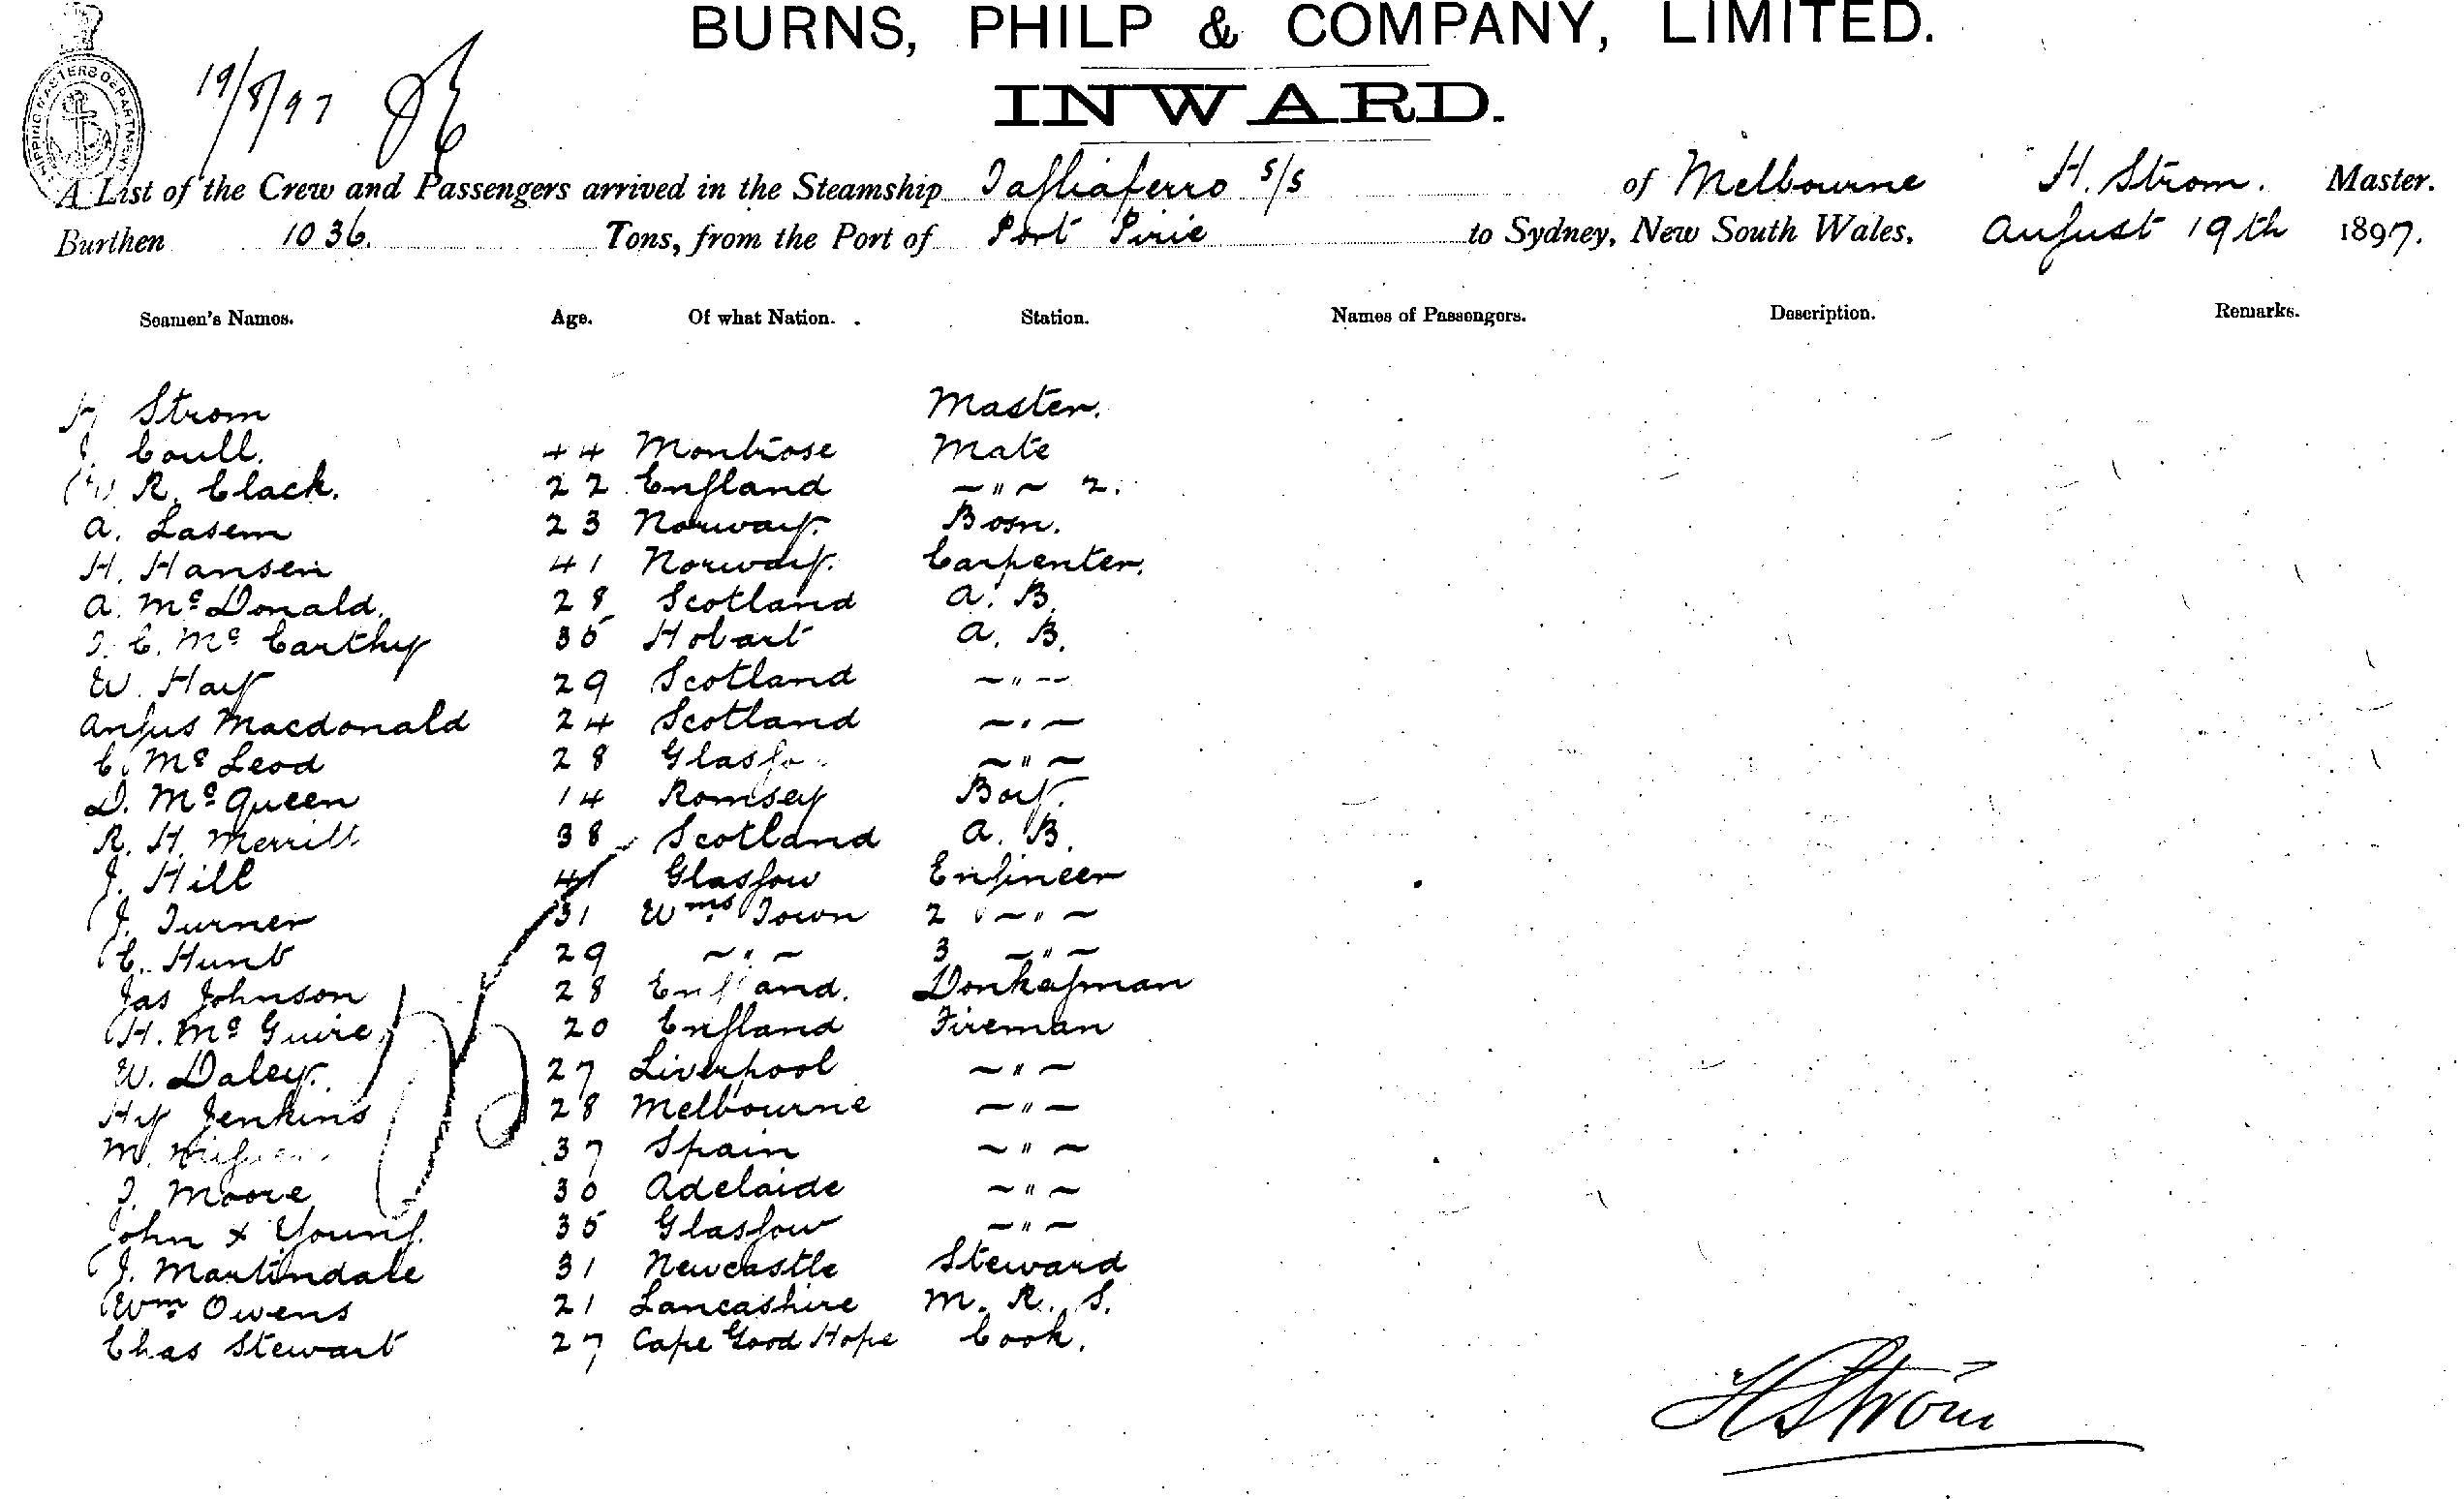 BURNS, PHILP & COMPANY, LIMITED.
INWARD.
SHIPPING MASTERS DEPARTMENT
19/8/97
A List of the Crew and Passengers arrived in the Steamship Tagliaferro s/s of Melbourne H. Strom. Master.
Burthen 1036. Tons, from the Port of Port Pirie to Sydney, New South Wales, August 19th 1897.
Seamen's Names. Age. Of what Nation. Station. Names of Passengers. Description. Remarks.
H Strom Master.
J. Coull. 44 Montrose Mate
W R. Clack. 22 England ~"~ 2.
A. Lasem 23 Norway. Bosn.
H. Hansen 41 Norway. Carpenter.
A. McDonald. 28 Scotland A. B.
J. C. McCarthy 35 Hobart A. B.
W. Hay 29 Scotland ~"~
Angus Macdonald 24 Scotland ~"~
C. McLeod 28 Glasgow ~"~
D. McQueen 14 Romsey Boy.
R. H. Merrill 38 Scotland A. B.
J. Hill 41 Glasgow Engineer
J. Turner 31 Wms Town 2 ~"~
C. Hunt 29 ~"~ 3 ~"~
Jas Johnson 28 England. Donkeyman
H. McGuire 20 England Fireman
W. Daley. 27 Liverpool ~"~
Hy Jenkins 28 Melbourne ~"~
M. 37 Spain ~"~
J. Moore 30 Adelaide ~"~
John x Young. 35 Glasgow ~"~
J. Martindale 31 Newcastle Steward
Wm Owens 21 Lancashire M. R. S.
Chas Stewart 27 Cape Good Hope Cook.
H Ström